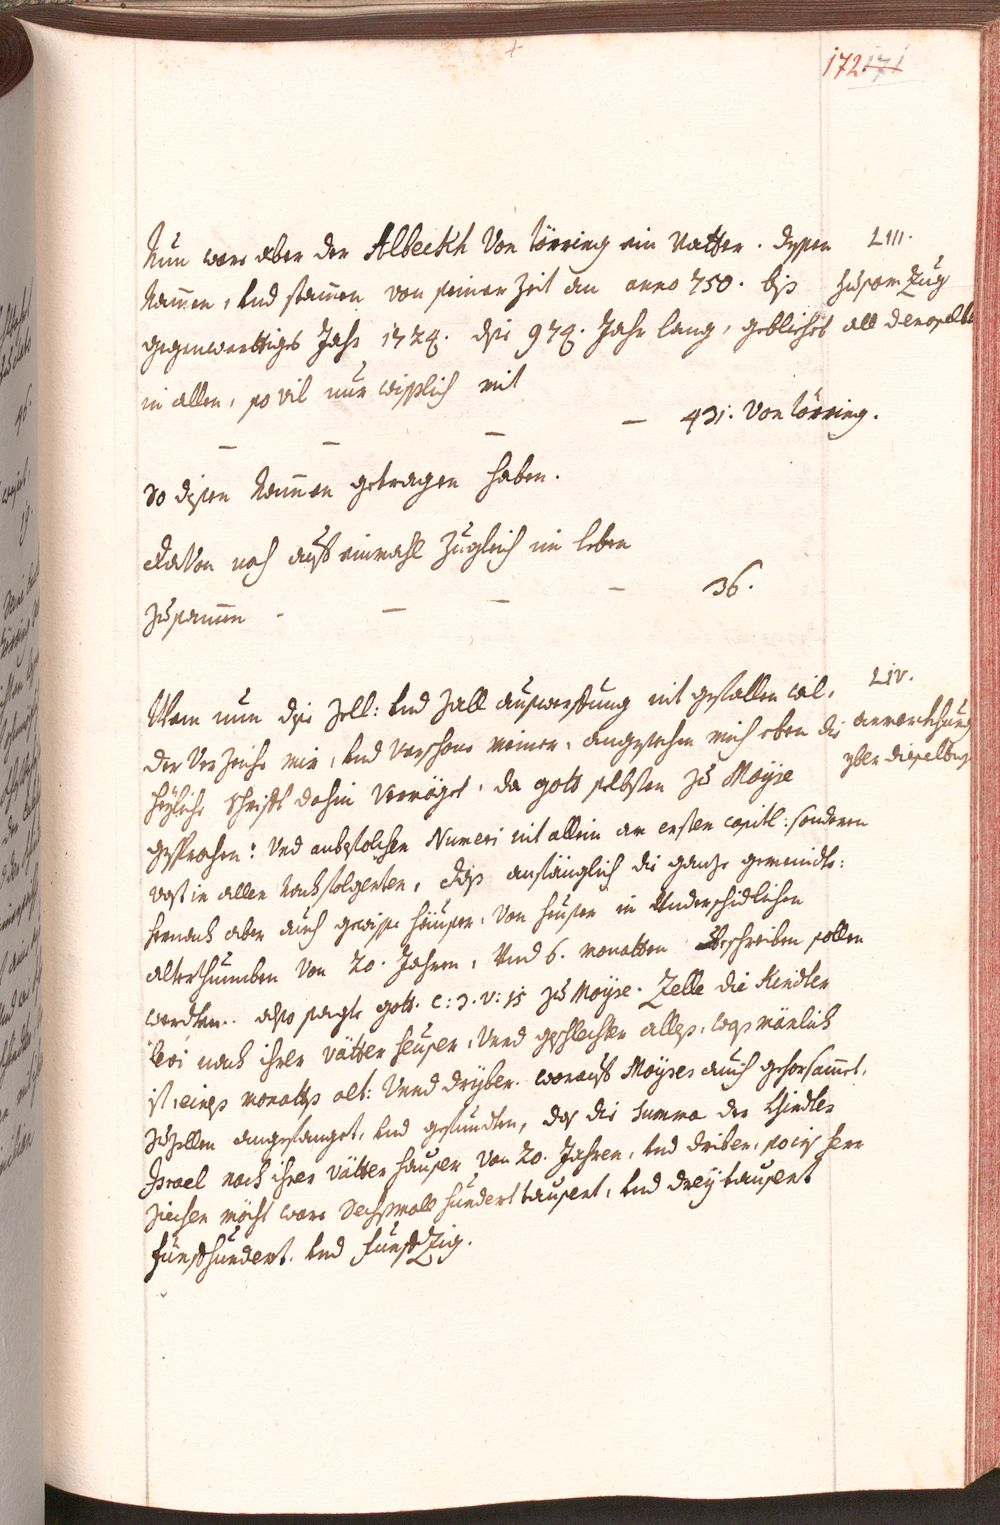 172 171
Nun ware aber der Albeckh Von Törring ein Vatter. dysen
LIII.
Nammen, und stammen von seiner Zeit an anno 750. biß
Zusam Zug
gegenwerttiges Jahr 1724. die 974. Jahr lang, geblichet
all deroselbe
in allen, so vil nur wisslich mit
431. Von Törring.
so disen Nammen getragen haben.
daVon noch auf einmahl Zugleich im leben
Zusamen
36.
Wem nun dise Zell: und Zall auswerffung nit gefallen wil,
LIV.
der Verzeiche mir, und verschone meiner, angesehen mich eben die
anmerkhung
heyliche schrifft dahin Vermöget, da gott selbsten zu Moyse
yber dieselbige
gesprochen: Und anbefolchen Numeri nit allein am ersten capitl: sonderen
vast in allen Nachfolgenten, daß anfänglich die ganze gemeindte:
hernach aber auch gewisse häuser, Von heuser in Underschidlichen
alterthumben Von 20. Jahren, Und 6. monatten beschreiben sollen
werdten. also sagte gott. c: 3. v: 15 zu Moyse. Zelle die Kindter
levi nach ihrer vätter heuser, Unnd geschlechter alles, was mänlich
ist, eines monatts alt: Unnd dryber. worauf Moyses auch gehorsammet,
zuzellen angefanget, und gefundten, das die Summa der Khindter
Israel nach ihrer vätter hauser von 20. Jahren, und driber, so in herr
ziechen möcht ware Sechsmall hunderttausent, und dreytausent
fünffhundert. und fünffzig.